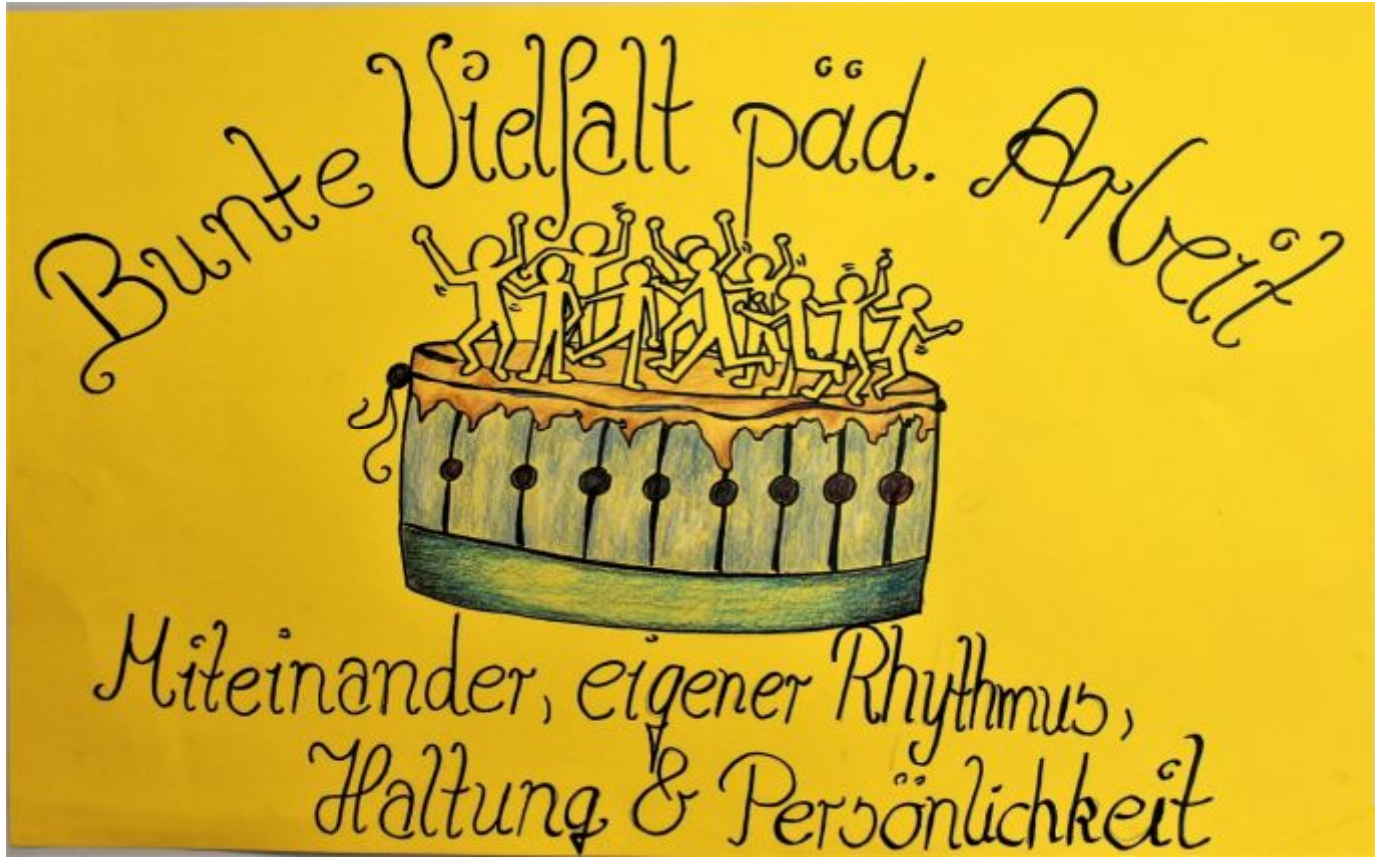 Bunte Vielfalt päd. Arbeit
Miteinander, eigener Rhythmus,
Haltung & Persönlichkeit